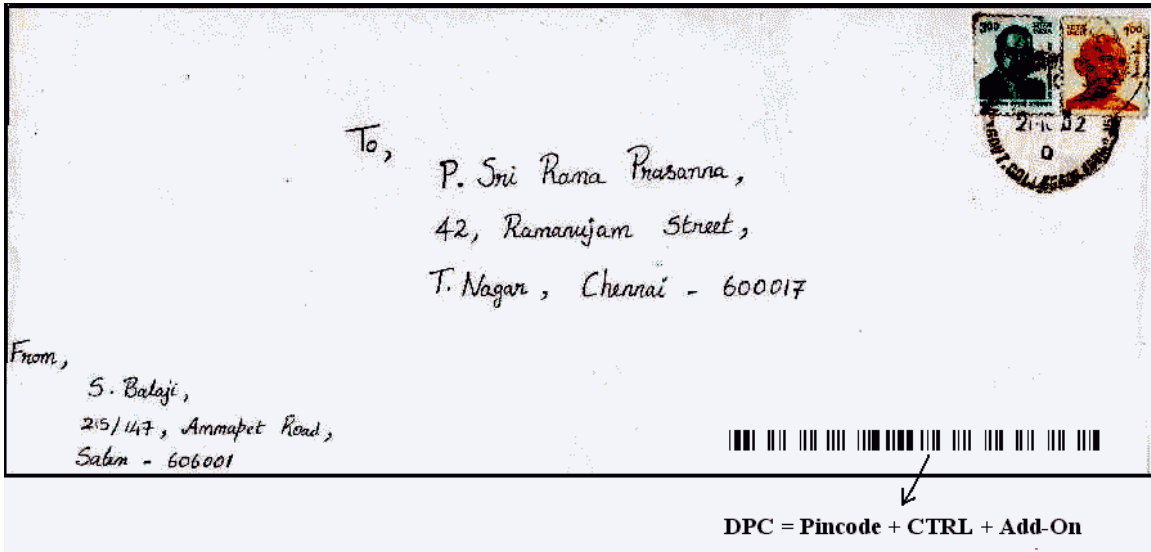 300
100
21 02
0
To,
P. Sri Rama Prasanna,
42, Ramanujam Street,
T. Nagar, Chennai - 600017
From,
S. Balaji,
25/147, Ammapet Road,
Salem - 606001
DPC = Pincode + CTRL + Add-On